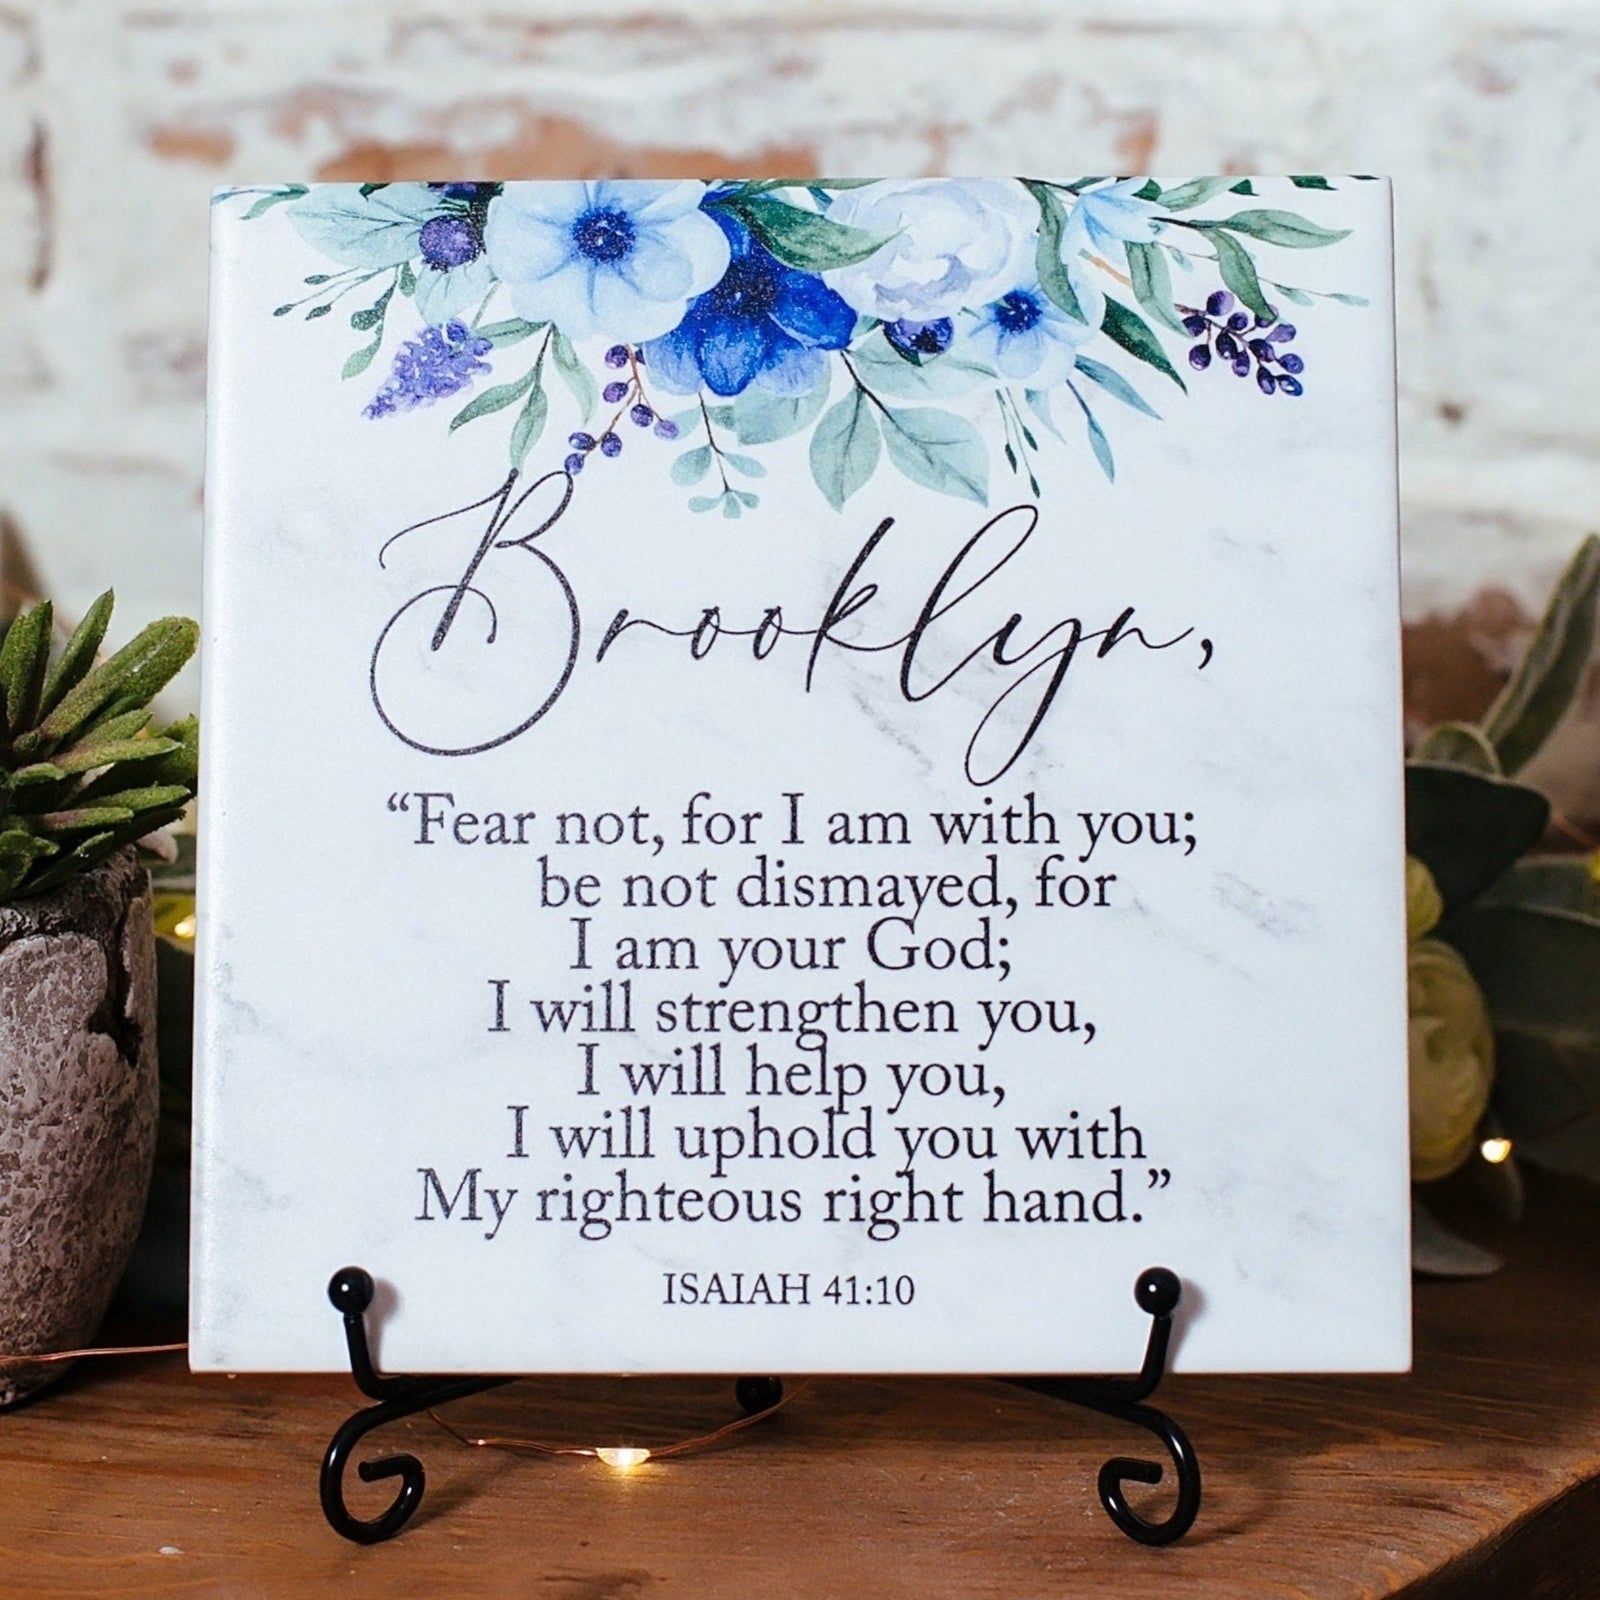 Brooklyn,
“Fear not, for I am with you;
be not dismayed, for
I am your God;
I will strengthen you,
I will help you,
I will uphold you with
My righteous right hand.”
ISAIAH 41:10